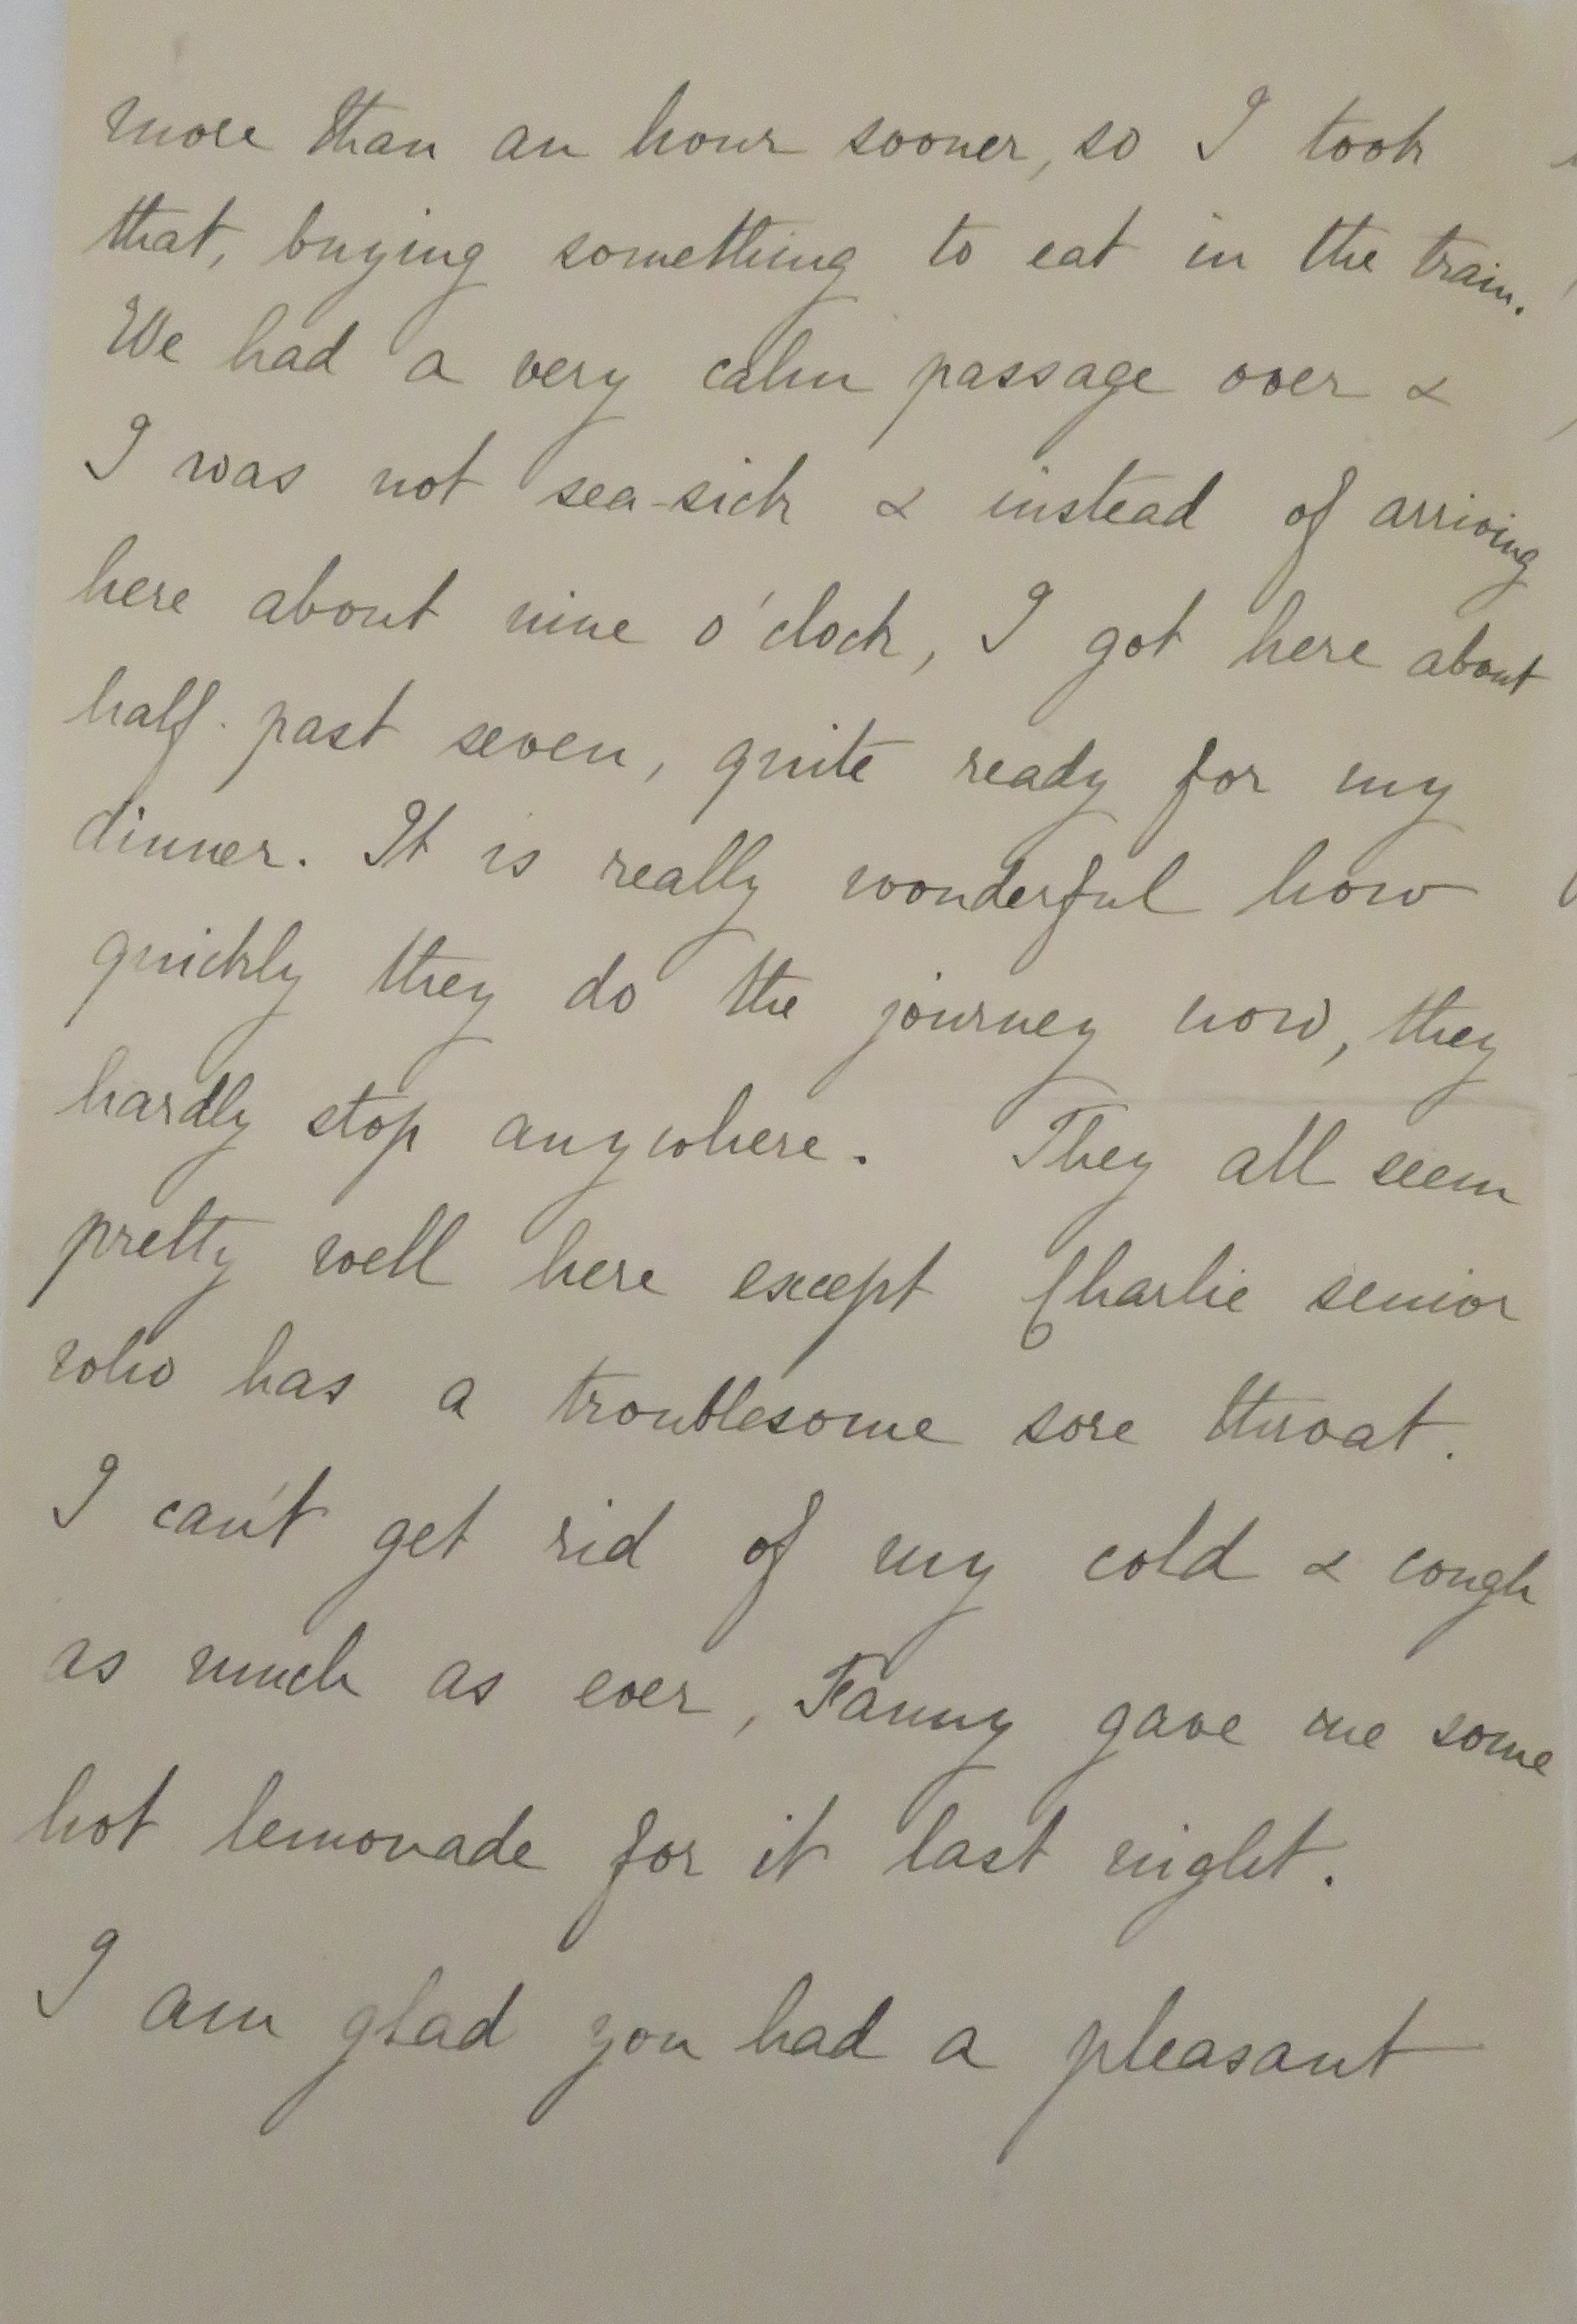 more than an hour sooner, so I took
that, buying something to eat in the train.
We had a very calm passage over &
I was not sea-sick & instead of arriving
here about nine o'clock, I got here about
half-past seven, quite ready for my
dinner. It is really wonderful how
quickly they do the journey now, they
hardly stop anywhere. They all seem
pretty well here except Charlie senior
who has a troublesome sore throat.
I can't get rid of my cold & cough
as much as ever, Fanny gave me some
hot lemonade for it last night.
I am glad you had a pleasant